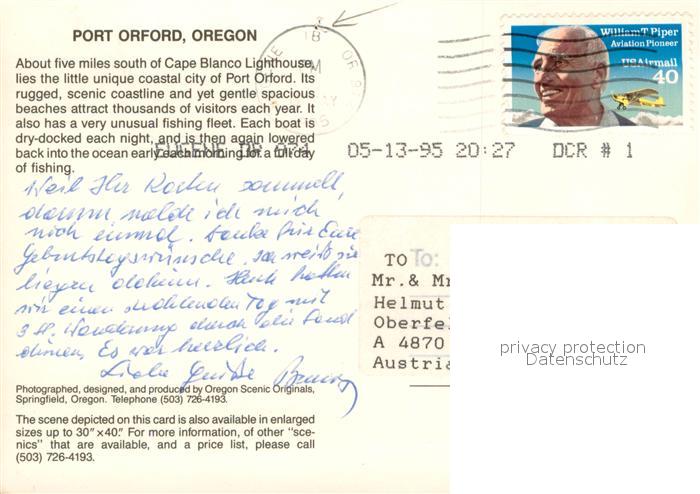 PORT ORFORD, OREGON
About five miles south of Cape Blanco Lighthouse,
lies the little unique coastal city of Port Orford. Its
rugged, scenic coastline and yet gentle spacious
beaches attract thousands of visitors each year. It
also has a very unusual fishing fleet. Each boat is
dry-docked each night, and is then again lowered
back into the ocean early each morning for a full day
of fishing.
William T Piper
Aviation Pioneer
USAirmail
40
EUGENE OR 974 05-13-95 20:27 DCR # 1
Weil Ihr Karten sammelt,
darum melde ich mich
noch einmal. Danke für Eure
Geburtstagswünsche. Ich weiß sie
liegen daheim. Heute hatten
wir einen strahlenden Tag mit
3 St. Wanderung durch die Sand
dünen. Es war herrlich.
Liebe Grüße
TO To:
Mr.& Mr
Helmut
Oberfel
A 4870
Austria
privacy protection
Datenschutz
Photographed, designed, and produced by Oregon Scenic Originals,
Springfield, Oregon. Telephone (503) 726-4193.
The scene depicted on this card is also available in enlarged
sizes up to 30" × 40." For more information, of other "sce-
nics" that are available, and a price list, please call
(503) 726-4193.